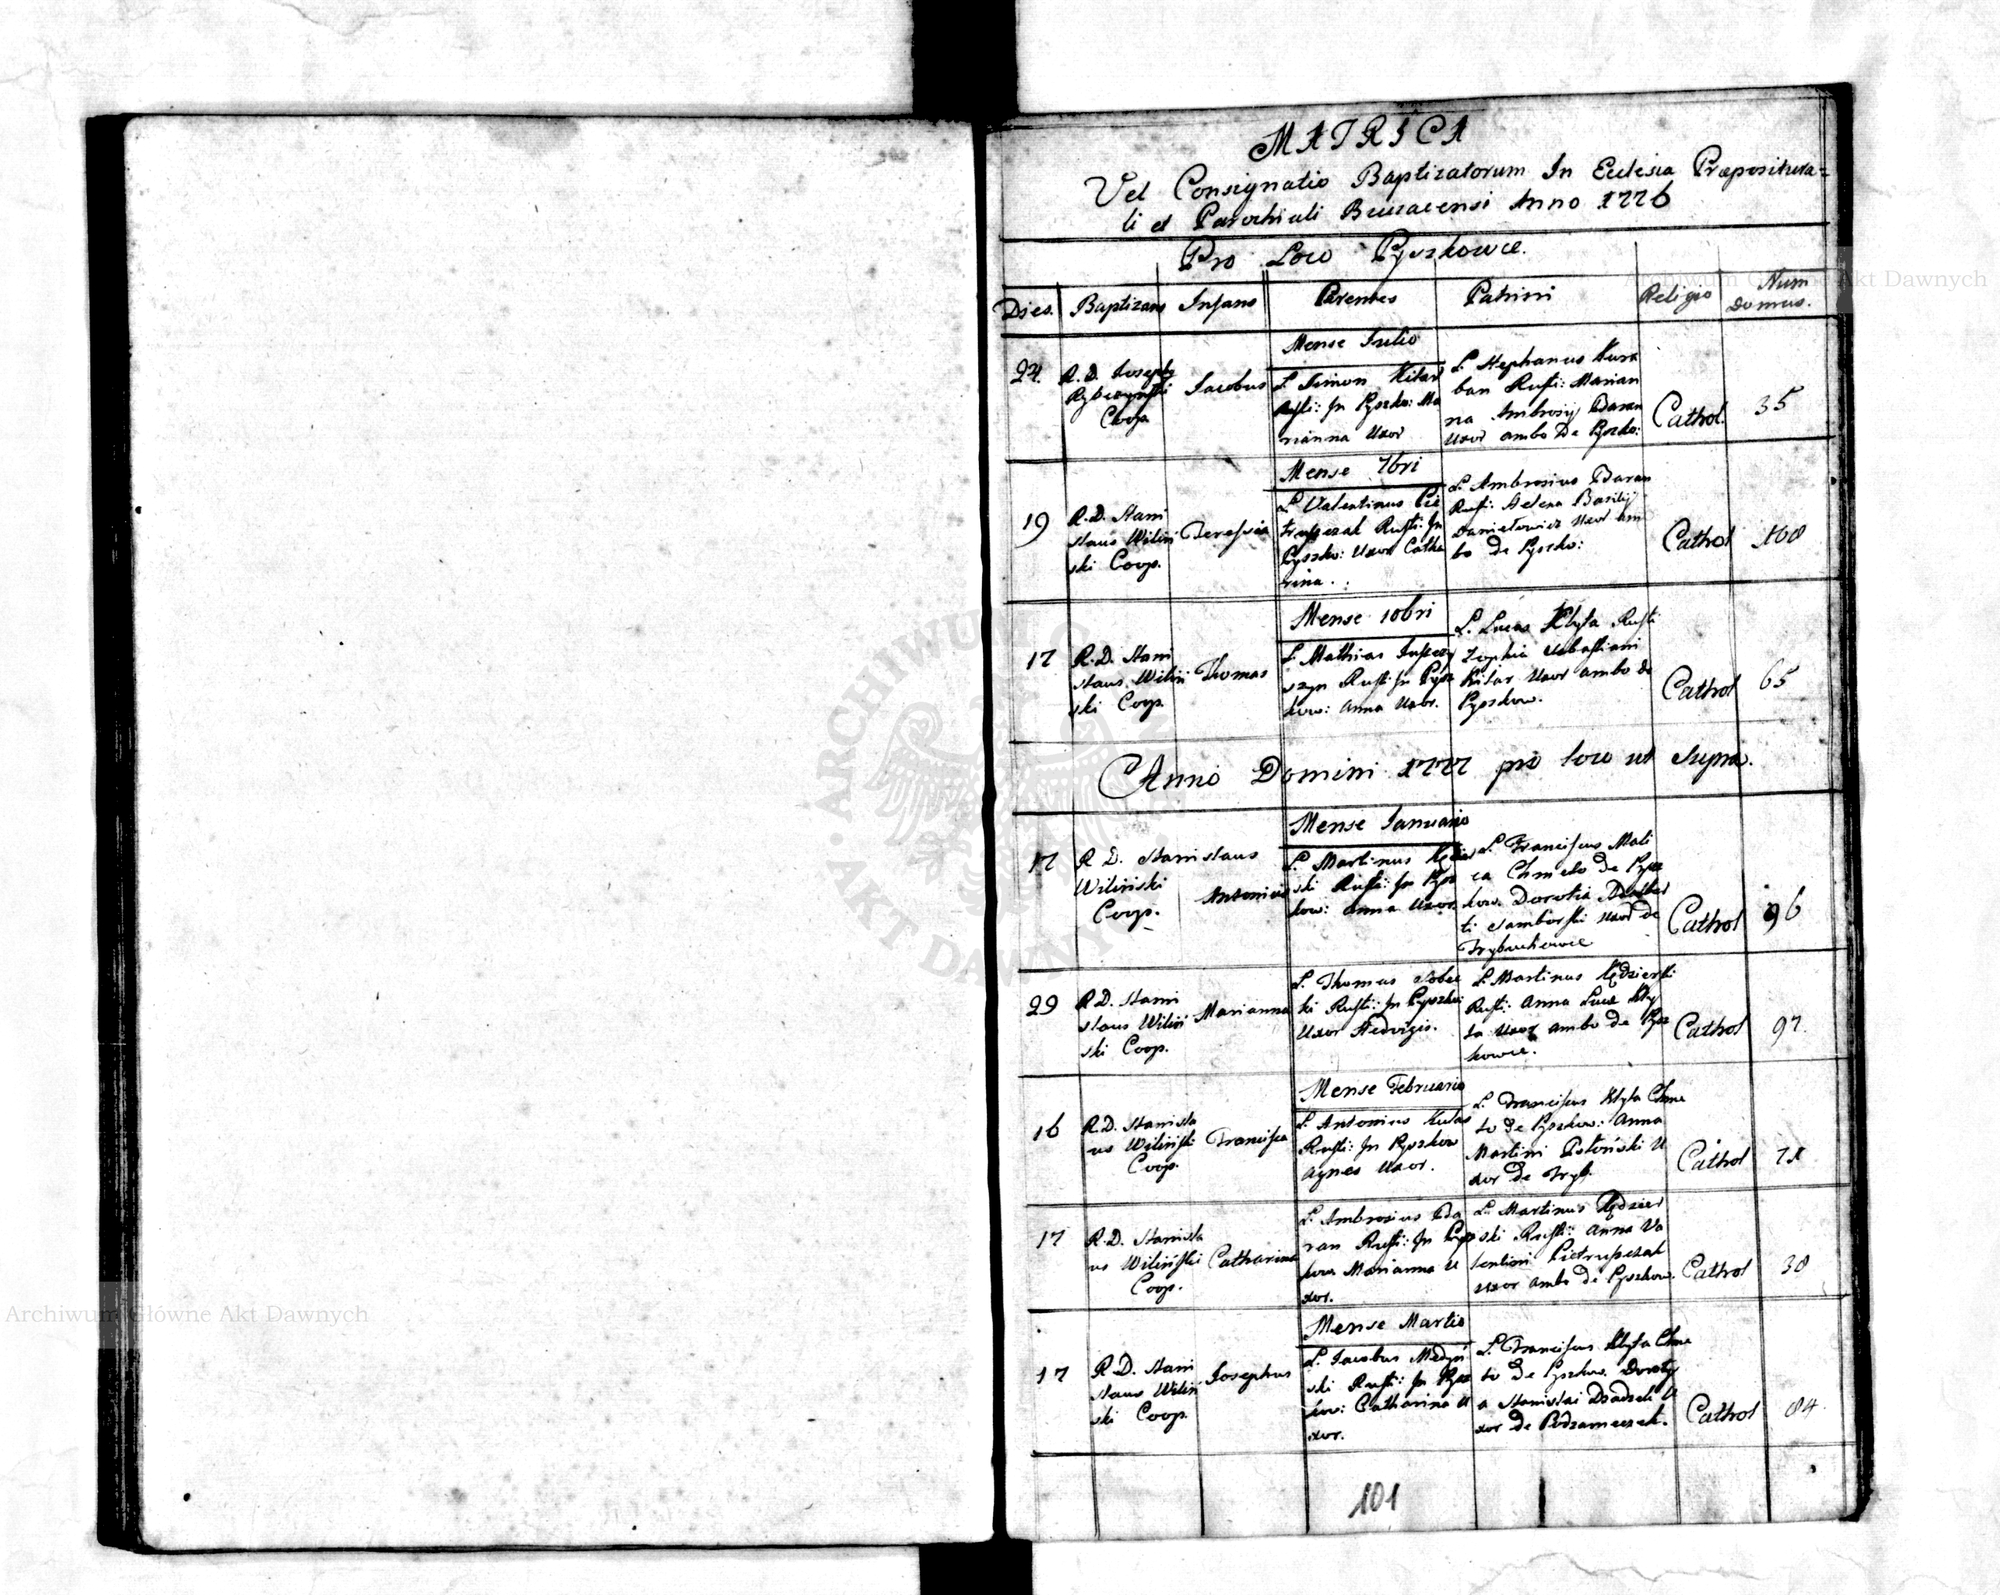 MATRICA
Vel Consignatio Baptizatorum In Ecclesia Præpositura=
li et Parochiali Buczacensi Anno 1776
Pro Loco Pyszkowce.
Dies. Baptizans Infans Parentes Patrini Religio Num Domus.
Mense Julio
24. R. D. Joseph
Coop.
Jacobus
L. Simon Kitar
Rusti: In Pyszko: Ma
rianna Uxor
L. Stephanus Kura
ban Rusti: Marian
na Ambrosij Baran
Uxor ambo De Pyszko:
Cathol. 35
Mense 7bri
19 R. D. Stani
slaus Wiliń
ski Coop.
Teressia
L. Valentinus Pie
truszczak Rusti: In
Pyszko: Uxor Catha
rina.
L. Ambrosius Baran
Rusti: Helena Basilij
Danielowicz Uxor am
bo de Pyszko:
Cathol 108
Mense 10bri
17 R. D. Stani
slaus Wiliń
ski Coop.
Thomas
L. Mathias
szyn Rusti In Pysz
kow: Anna Uxor.
L. Lucas Klyta Rusti
Zophia Sebastiani
Kitar Uxor ambo de
Pyszkow.
Cathol 65
Anno Domini 1777 pro loco ut Supra.
Mense Januario
17 R D. Stanislaus
Wiliński
Coop.
Antonius
L. Martinus Kędzier
ski Rusti: In Pysz
kow: Anna Uxor
L. Franciscus Mali
ca Chmeto de Pysz
kow. Dorotia
ti Samborski Uxor de
Trybuchowce
Cathol 96
29 R D. Stani
slaus Wiliń
ski Coop.
Marianna
L. Thomas Sobec
ki Rusti: In Pyszko:
Uxor Hedvigis.
L. Martinus Kędzierski
Rusti: Anna Luca Kly
ta Uxor ambo de Pysz
kowce.
Cathol 97.
Mense Februario
16 R D. Stanisla
us Wiliński
Coop.
Francisca
L. Antonius Kulas
Rusti: In Pyszkow
Agnes Uxor.
L. Franciscus Klyta Chme
to de Pyszkow: Anna
Martini Pstoński U
xor de Tryb.
Cathol 71
17 R. D. Stanisla
us Wiliński
Coop.
Catharina
L. Ambrosius Ba
ran Rusti: In Pysz
kow Marianna U
xor.
L. Martinus Kędzier
ski Rusti: Anna Va
lentini Pietruszczak
Uxor ambo de Pyszkow.
Cathol 38
Mense Martio
17 R D. Stani
slaus Wiliń
ski Coop.
Josephus
L. Jacobus Medyń
ski Rusti: In Pysz
kow: Catharina U
xor.
L. Franciscus Klyta Chme
to de Pyszkow. Doroty
a Stanislai Dzadzek U
xor de Podzameczek.
Cathol 84.
101
Archiwum Główne Akt Dawnych
Archiwum Główne Akt Dawnych
ARCHIWUM
AKT DAWNYCH